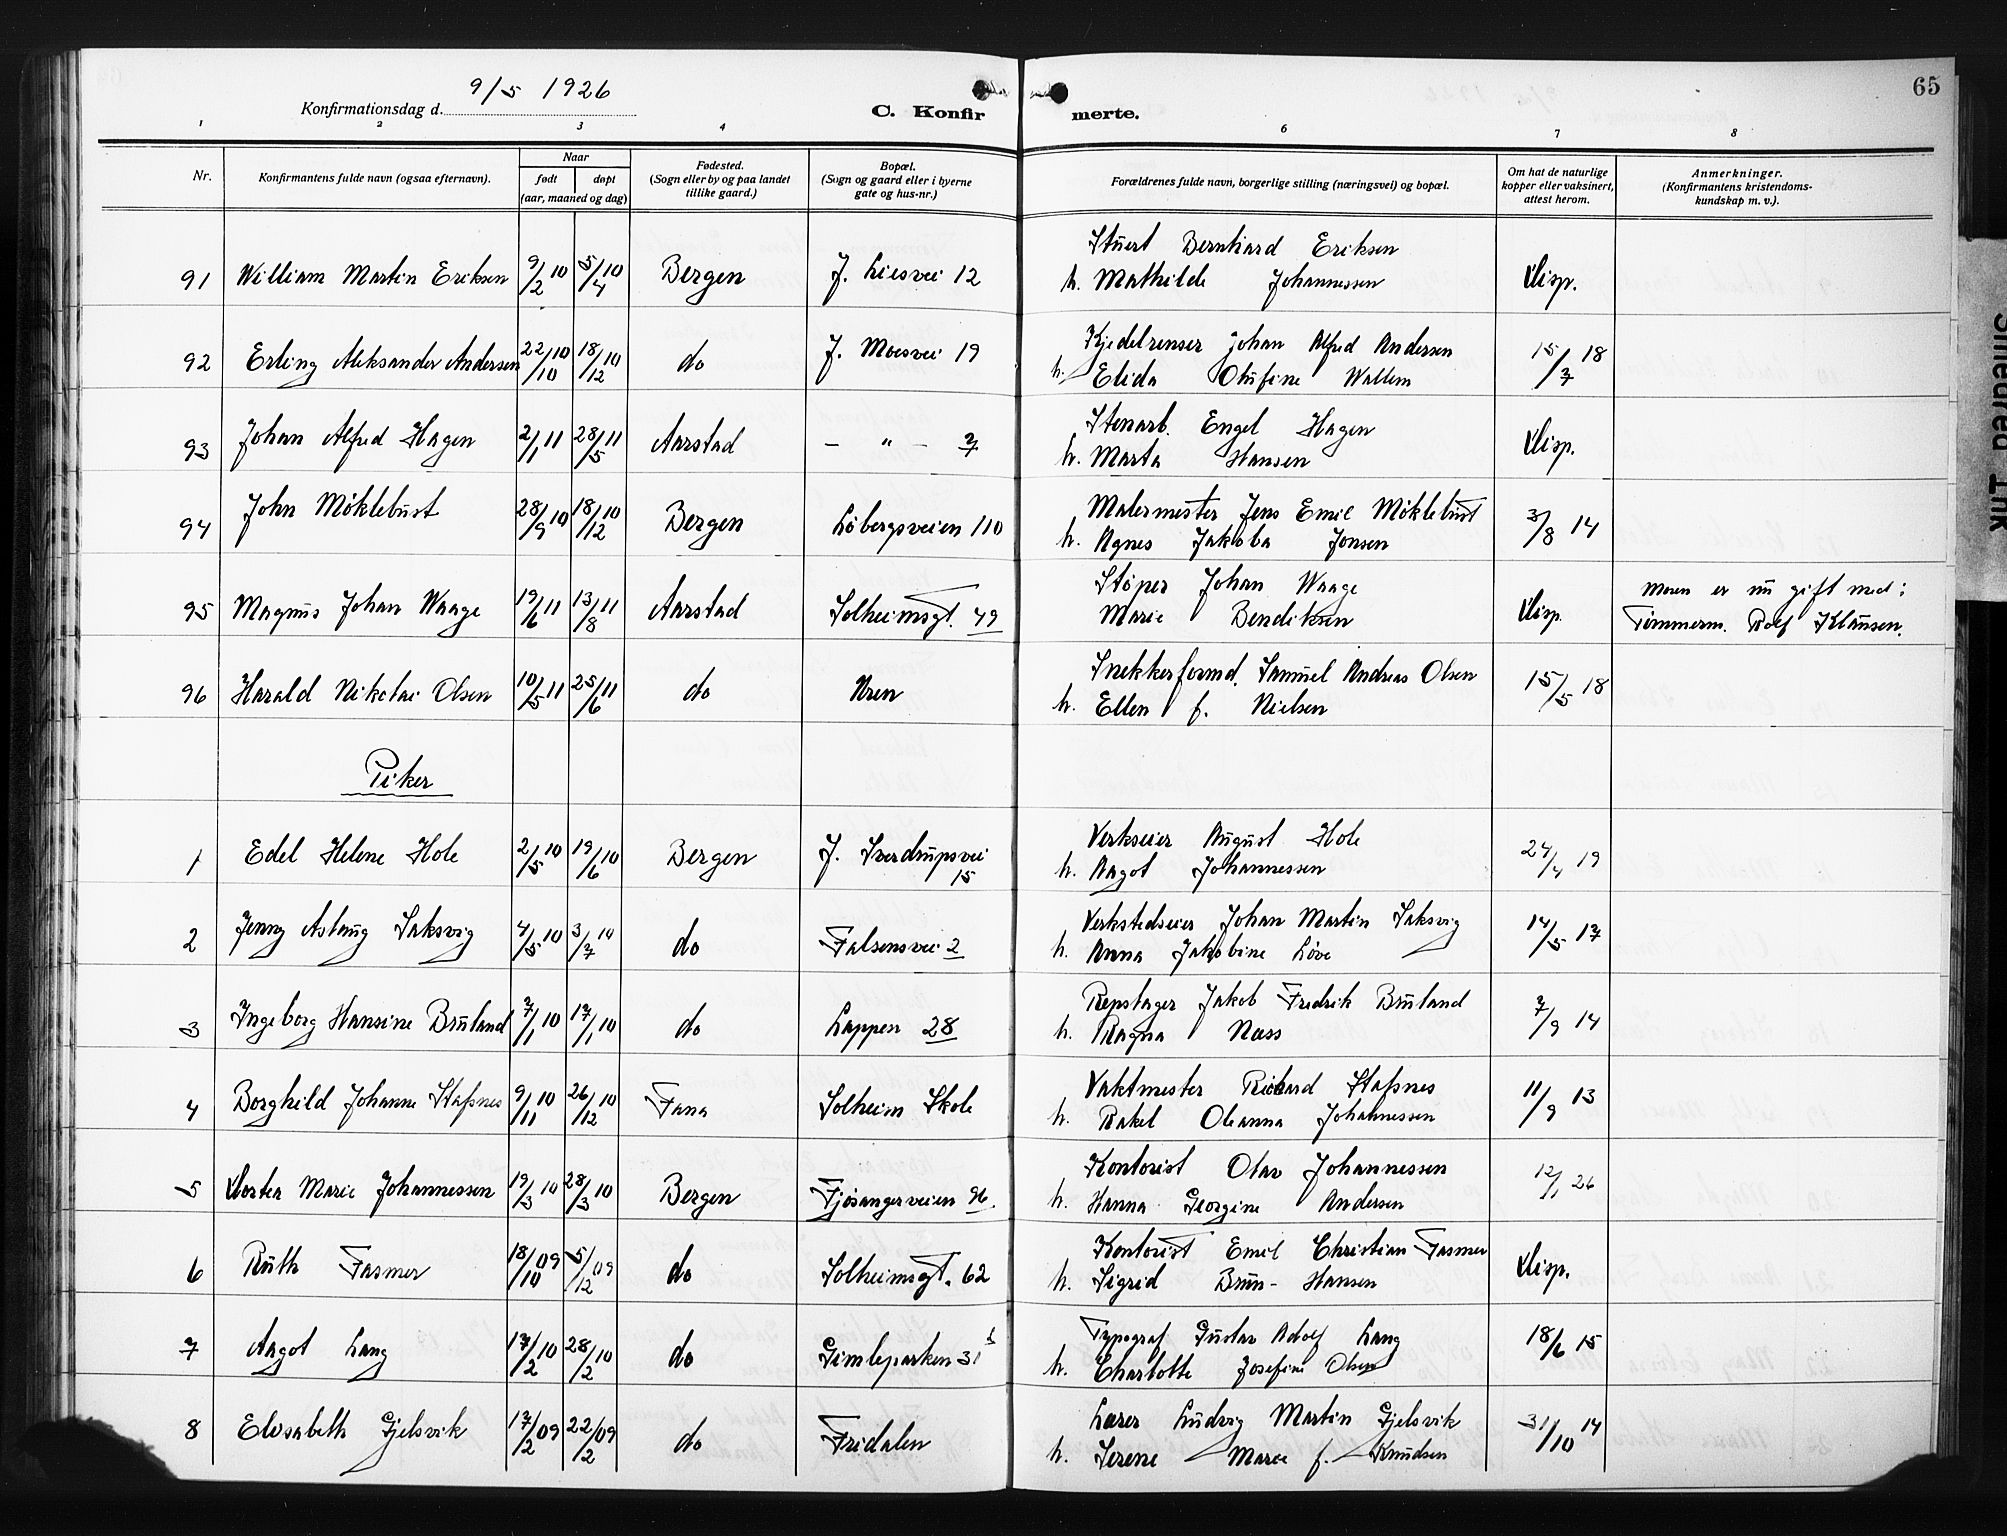 65
9/5 1926
Konfirmationsdag d.
C. Konfir merte.
1 2 3 4 6 7 8
Nr.
Konfirmantens fulde navn (ogsaa efternavn).
Naar
født døpt
(aar, maaned og dag)
Fødested.
(Sogn eller by og paa landet
tillike gaard.)
Bopæl.
(Sogn og gaard eller i byerne
gate og hus-nr.)
Forældrenes fulde navn, borgerlige stilling (næringsvei) og bopæl.
Om hat de naturlige
kopper eller vaksinert,
attest herom.
Anmerkninger.
(Konfirmantens kristendoms-
kundskap m. v.).
91 William Martin Eriksen 9/2 10 5/4 10 Bergen J. Liesvei 12 Stuert Bernhard Eriksen Disp.
h. Mathilde Johannessen
92 Erling Aleksander Andersen 22/10 10 18/12 10 do J. Moesvei 19 Kjedelrenser Johan Alfred Andersen 15/7 18
h. Elida Olufine Wallem
93 Johan Alfred Hagen 2/1 11 28/5 11 Aarstad — " — 7 Stenarb. Engel Hagen Disp.
h. Marta Hansen
94 John Møklebust 28/9 10 18/12 10 Bergen Løbergsveien 110 Malermester Jens Emil Møklebust 3/8 14
h. Agnes Jakoba Jonsen
95 Magnus Johan Waage 19/6 11 13/8 11 Aarstad Solheimsgt. 49 Støper Johan Waage Disp. Moren er nu gift med:
Marie Bendiksen Tømmerm. Rolf Klausen.
96 Harald Nikolai Olsen 10/5 11 25/6 11 do Uren Snekkerformd. Samuel Andreas Olsen 15/5 18
h. Ellen f. Nielsen
Piker
1 Edel Helene Hole 2/5 10 19/6 10 Bergen J. Sverdrupsvei 15 Verkseier August Hole 24/4 19
h. Aagot Johannessen
2 Jenny Aslaug Saksvig 4/5 10 3/7 10 do Falsensvei 2 Verkstedseier Johan Martin Saksvig 14/5 17
h. Anna Jakobine Løve
3 Ingeborg Hansine Bruland 7/1 10 17/1 10 do Lappen 28 Repslager Jakob Fredrik Bruland 7/9 14
h. Ragna Næss
4 Borghild Johanne Stafsnes 9/11 10 26/12 10 Fana Solheim Skole Vaktmester Richard Stafsnes 11/9 13
h. Rakel Oleanna Johannessen
5 Dortea Marie Johannessen 19/3 10 28/3 10 Bergen Fjøsangerveien 96. Kontorist Olav Johannessen 12/1 26
h. Hanna Georgine Andersen
6 Ruth Fasmer 18/10 09 5/12 09 do Solheimsgt. 62 Kontorist Emil Christian Fasmer Disp.
h. Sigrid Brun-Hansen
7 Aagot Lang 17/2 10 28/2 10 do Gimleparken 31 Typograf Gustav Adolf Lang 18/6 15
h. Charlotte Josefine Olsen
8 Elisabeth Gjelsvik 17/2 09 22/2 09 do Fridalen Lærer Ludvig Martin Gjelsvik 31/10 14
h. Serene Marie f. Knudsen